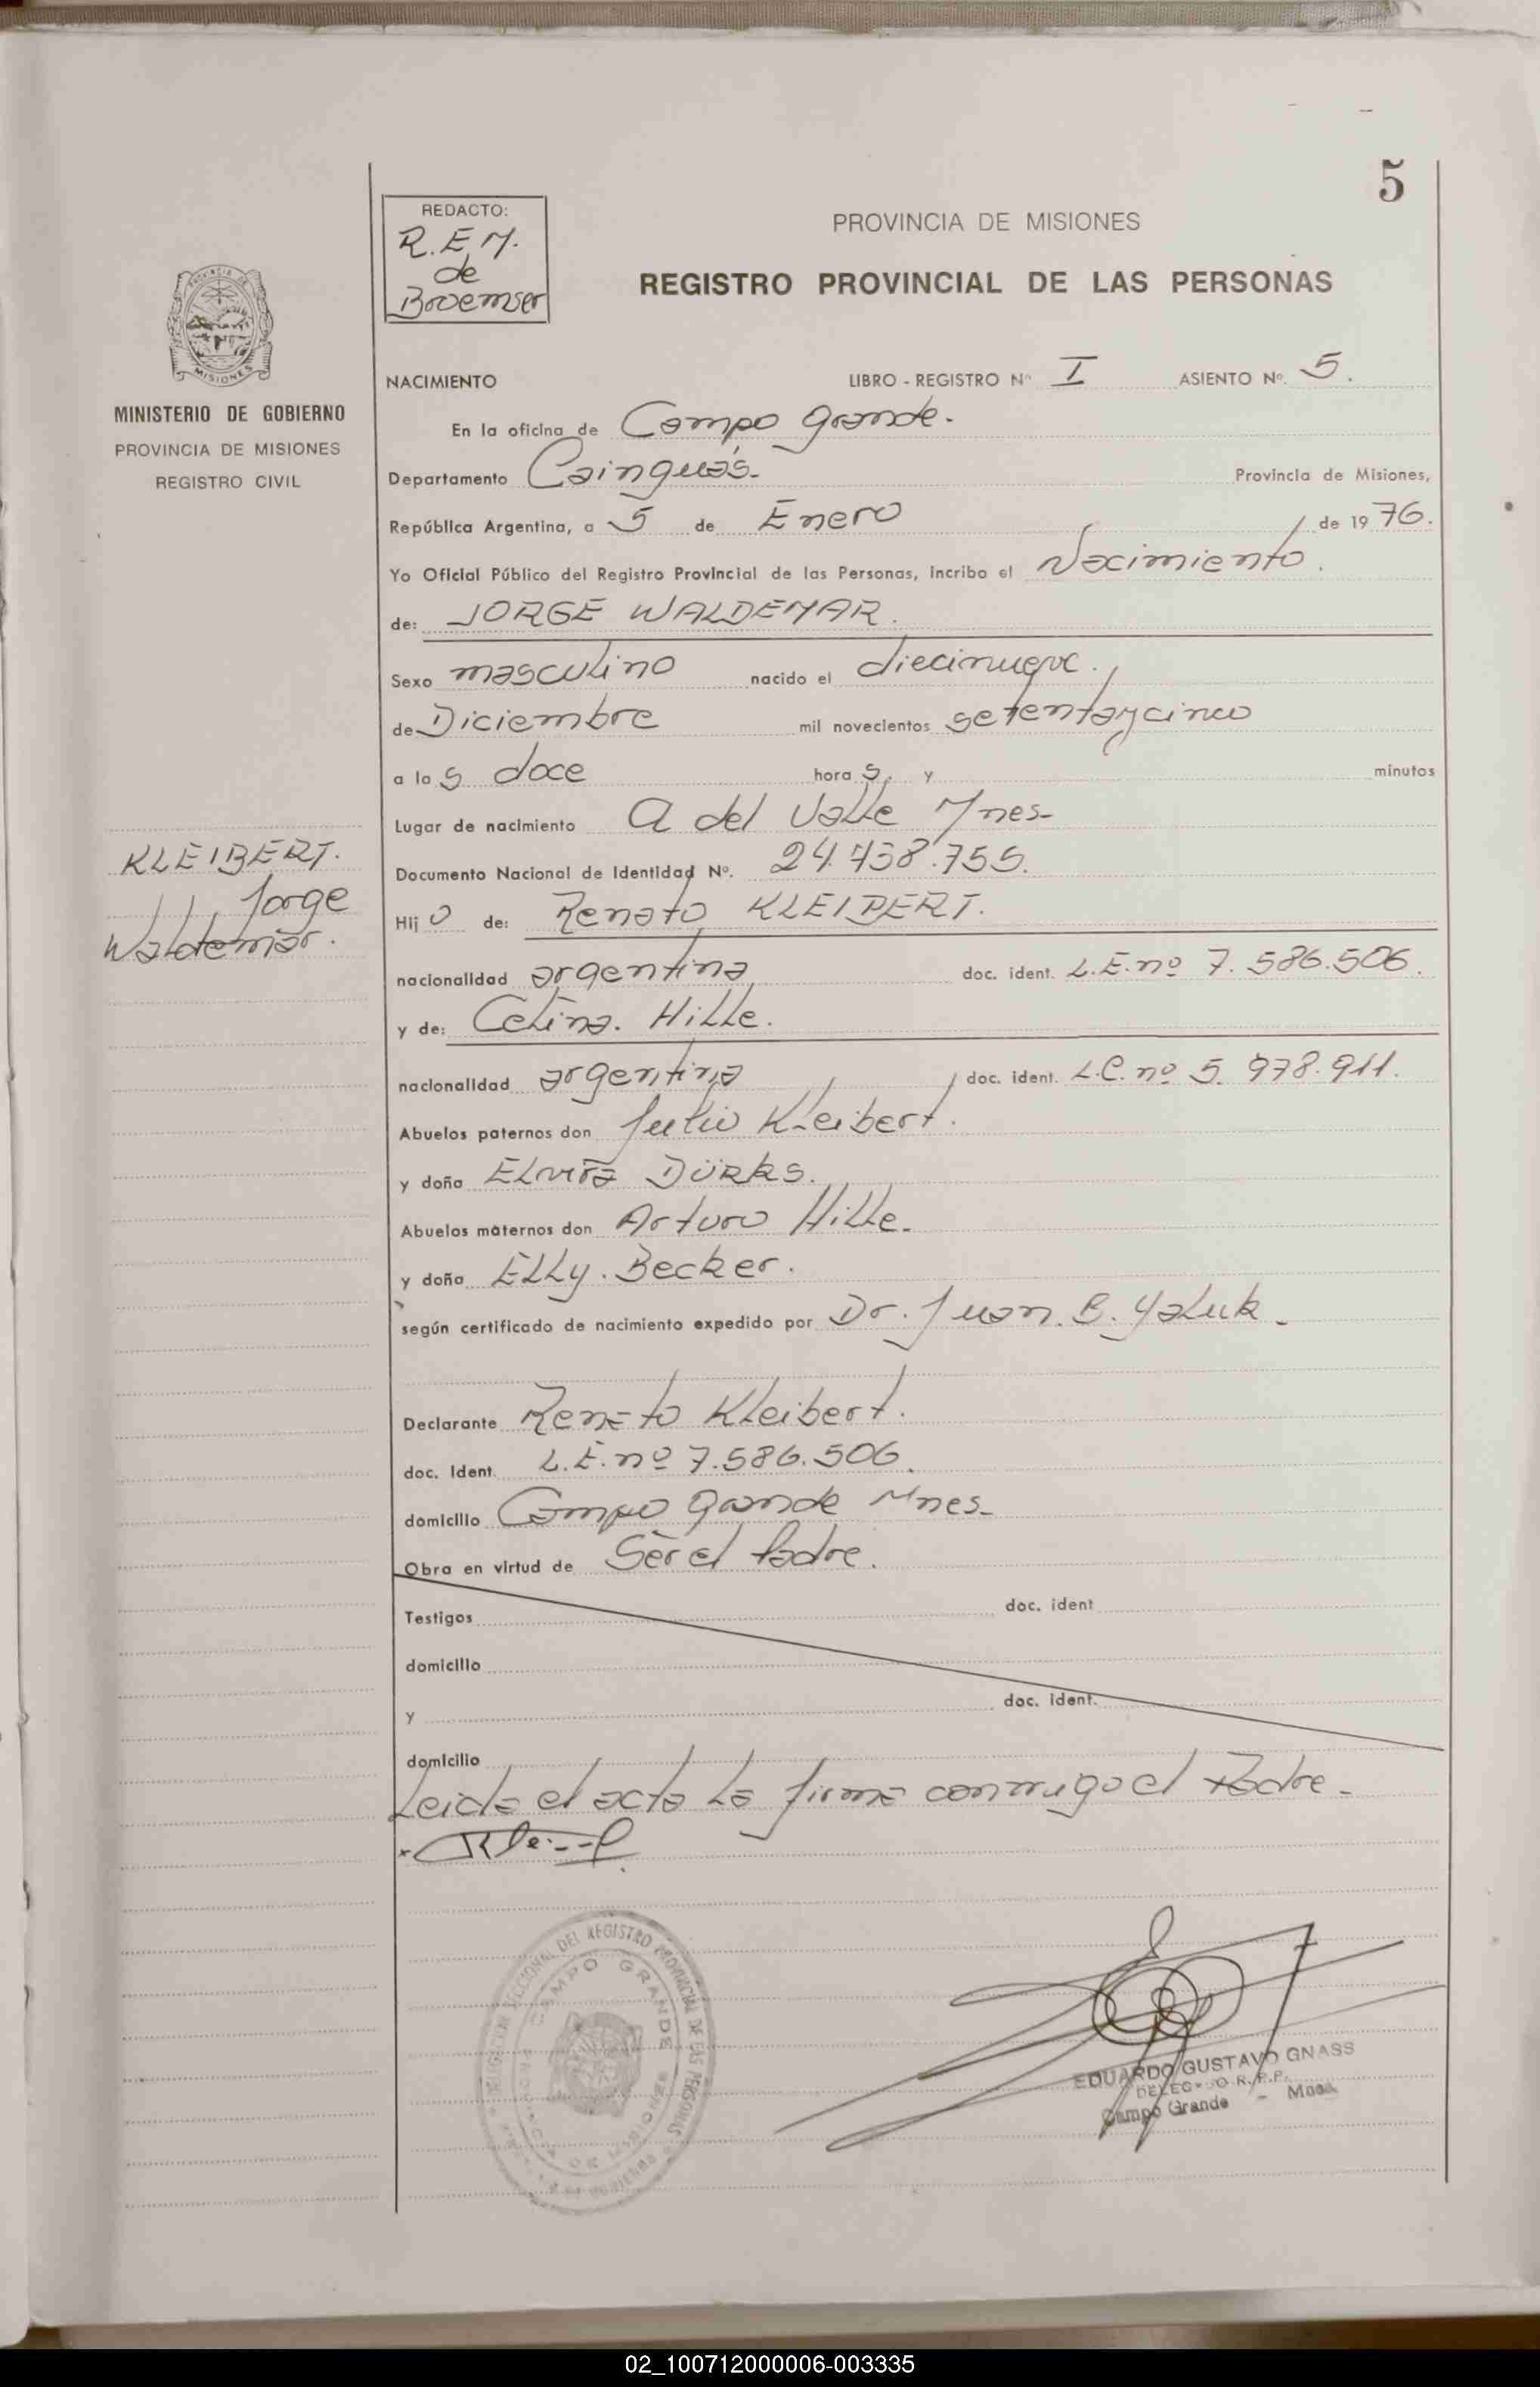 5
REDACTO:
R.E.M.
de
Broemser
PROVINCIA DE MISIONES
REGISTRO PROVINCIAL DE LAS PERSONAS
MISIONES
MINISTERIO DE GOBIERNO
PROVINCIA DE MISIONES
REGISTRO CIVIL
NACIMIENTO LIBRO - REGISTRO Nº I ASIENTO Nº. 5.
En la oficina de Campo Grande.
Departamento Cainguás. Provincia de Misiones,
República Argentina, a 5 de Enero de 1976.
Yo Oficial Público del Registro Provincial de las Personas, incribo el Nacimiento.
de: JORGE WALDEMAR.
Sexo masculino nacido el diecinueve.
de Diciembre mil novecientos setentaycinco
a las doce horas. y minutos
Lugar de nacimiento A del Valle Mnes-
Documento Nacional de Identidad Nº. 24.438.755.
KLEIBERT.
Jorge
Waldemar.
Hijo de: Renato KLEIBERT.
nacionalidad argentina doc. ident. L.E. nº 7.586.506.
y de: Celina. Hille.
nacionalidad argentina doc. ident. L.C. nº 5.978.911.
Abuelos paternos don Julio Kleibert.
y doña Elvira DÜRKS.
Abuelos maternos don Arturo Hille.
y doña Elly. Becker.
según certificado de nacimiento expedido por Dr. Juan. B. Yaluk.
Declarante Renato Kleibert.
doc. Ident. L.E. nº 7.586.506.
domicilio Campo Gande Mnes-
Obra en virtud de Ser el Padre.
Testigos doc. ident
domicilio
y doc. ident.
domicilio
Leida el acta la firma conmigo el Padre-
CAMPO GRANDE
EDUARDO GUSTAVO GNASS
R.P.P.
Campo Grande - Mnes.
02_100712000006-003335